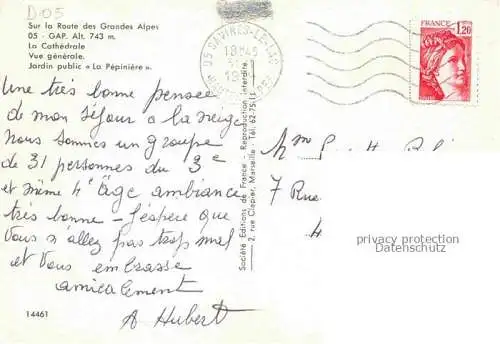 D05
Sur la Route des Grandes Alpes
05 - GAP. Alt. 743 m.
La Cathédrale
Vue générale.
Jardin public « La Pépinière ».
Une très bonne pensée
de mon séjour à la neige
nous sommes un groupe
de 31 personnes du 3e
et même 4e âge ambiance
très bonne - J'espère que
Vous n'allez pas trop mal
et Vous embrasse
amicalement
A Hubert
14461
Société Editions de France - Reproduction interdite.
2, rue Clapier, Marseille - Tél. 62-75
05 SAVINES-LE-LAC
18H45
FRANCE 1,20
Mme
7 Rue
privacy protection
Datenschutz